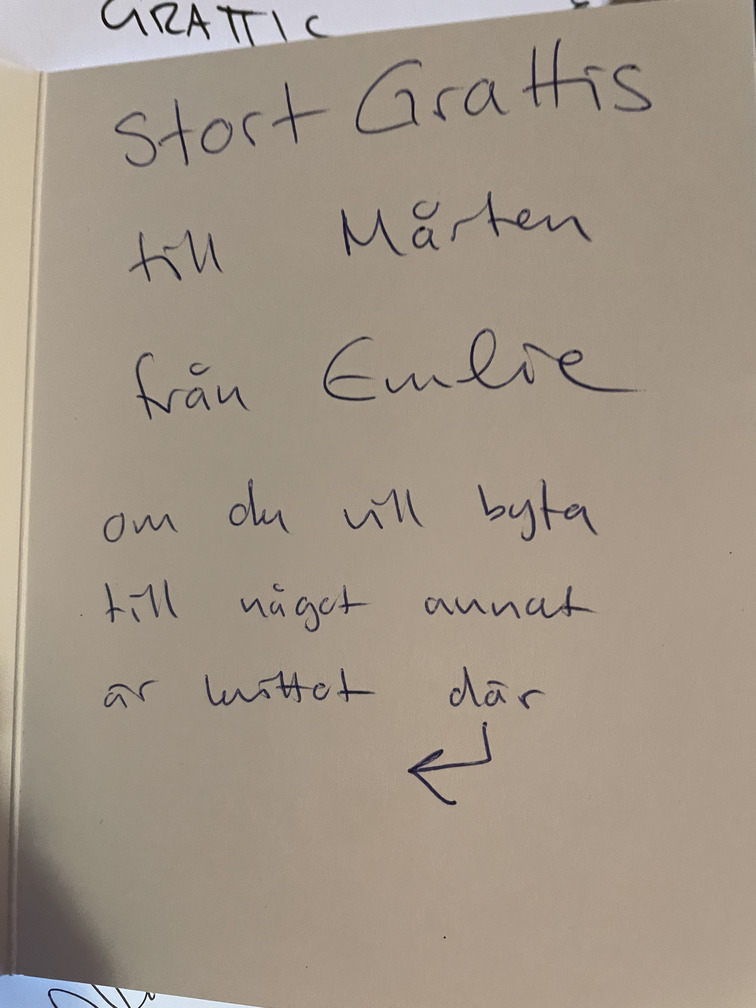 GRATTIS
Stort Grattis
till Mårten
från Emelie
om du vill byta
till något annat
är kvittot där